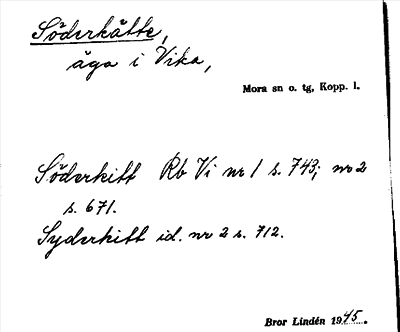 Söderkätte,
äga i Vika,
Mora sn o. tg, Kopp. l.
Söderkitt Rb Vi nr 1 s. 743; nr 2
s. 671.
Syderkitt id. nr 2 s. 712.
Bror Lindén 1945.